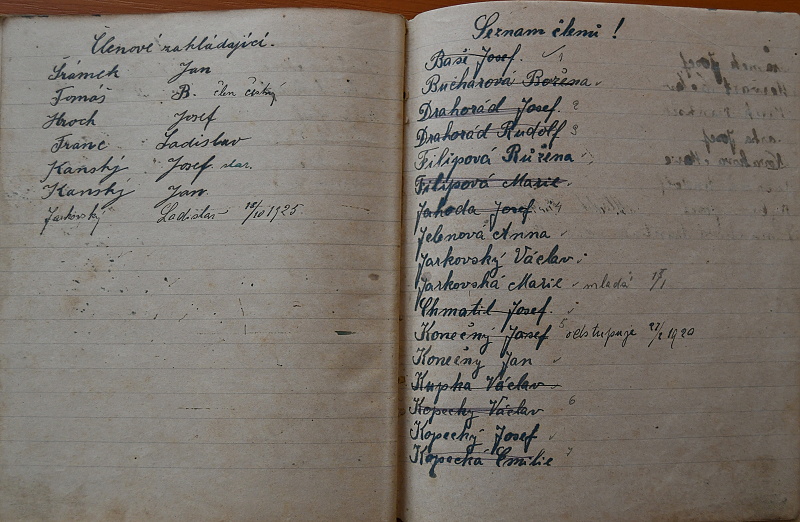 Členové zakládající.
Šrámek Jan
Tomáš B. člen čestný
Hroch Josef
Franc Ladislav
Kanský Josef star.
Kanský Jan
Jarkovský Ladislav 18/10 1925
Seznam členů!
Bašе Josef. 1
Buchárová Božena
Drahorád Josef. 2
Drahorád Rudolf 3
Filipová Růžena
Filipová Marie.
Jahoda Josef 4
Jelenová Anna
Jarkovský Václav
Jarkovská Marie mladá
Chmatil Josef.
Konečný Josef 5 odstupuje
Konečný Jan
Kupka Václav
Kopecký Václav 6
Kopecký Josef
Kopecká Emilie 7